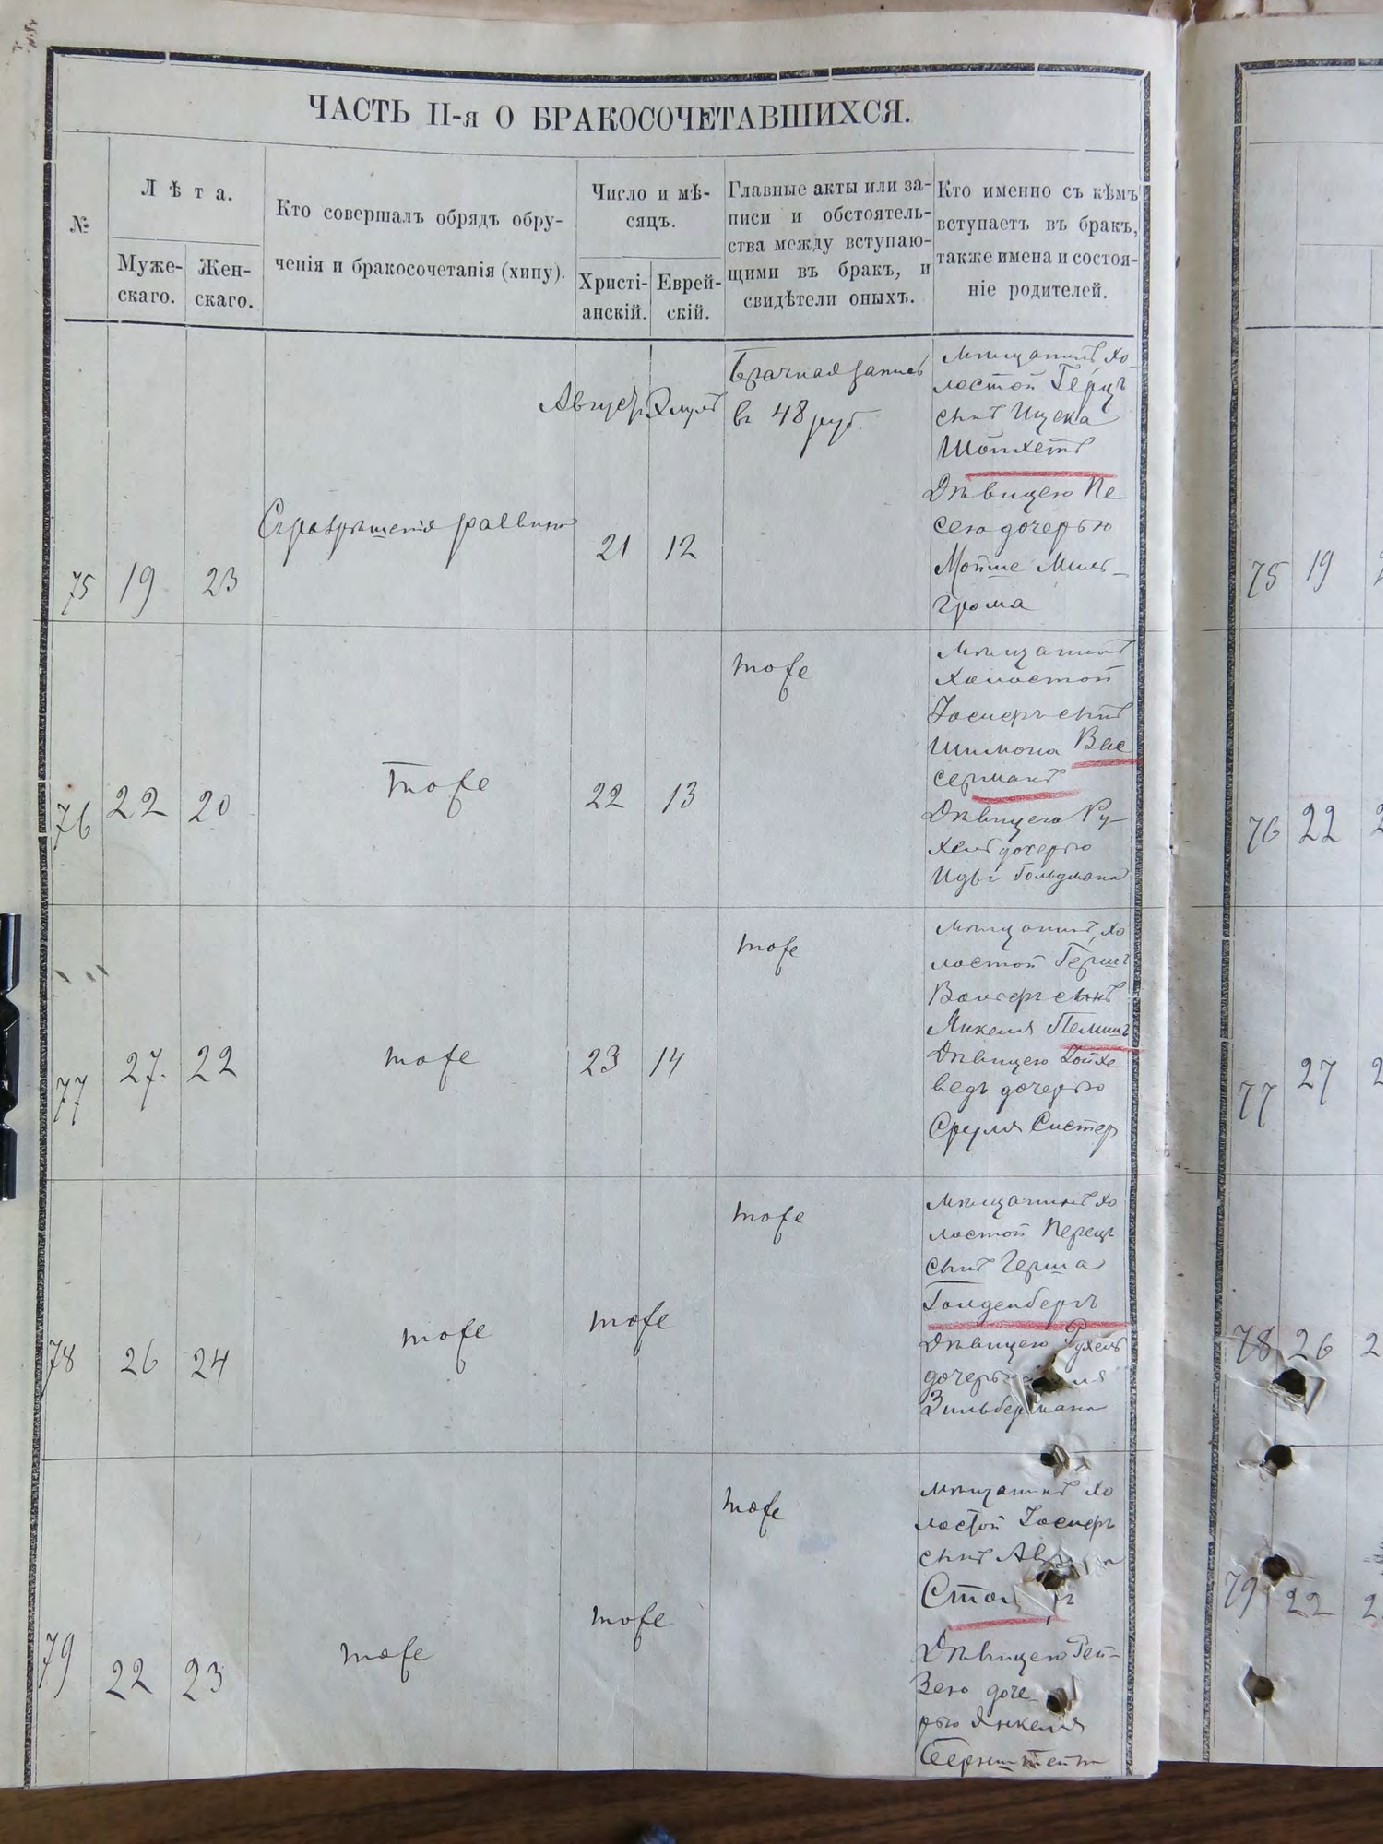 ЧАСТЬ II-я О БРАКОСОЧЕТАВШИХСЯ.
№
Лѣта.
Муже-
скаго.
Жен-
скаго.
Кто совершалъ обрядъ обру-
ченія и бракосочетанія (хипу).
Число и мѣ-
сяцъ.
Христі-
анскій.
Еврей-
скій.
Главные акты или за-
писи и обстоятель-
ства между вступаю-
щими въ бракъ, и
свидѣтели оныхъ.
Кто именно съ кѣмъ
вступаетъ въ бракъ,
также имена и состоя-
ніе родителей.
75
19
23
раввинъ
Август
21
12
Брачная запись
въ 48 руб.
Мѣщанинъ хо
лостой Герцъ
сынъ Ицека
Шойхетъ
Дѣвицею Пе
сею дочерью
Мойше Миль-
грома
76
22
20
тоже
22
13
тоже
Мѣщанинъ
холостой
Іосифъ сынъ
Шимона Вас
серманъ
Дѣвицею Ру-
хель дочерью
Гольдмана
77
27
22
тоже
23
14
тоже
Мѣщанинъ, хо
лостой Гершъ
сынъ
Янкеля
Дѣвицею Іойхе
ведъ дочерью
Сруля Систер
78
26
24
тоже
тоже
тоже
Мѣщанинъ хо
лостой Перецъ
сынъ Герша
Голденбергъ
Дѣвицею Рухель
дочерью
Зильбермана
79
22
23
тоже
тоже
тоже
Мѣщанинъ хо
лостой Іосифъ
сынъ
Дѣвицею Рей-
зею доче
рью Янкеля
Бернштейн
75
19
76
22
77
27
78
26
79
22